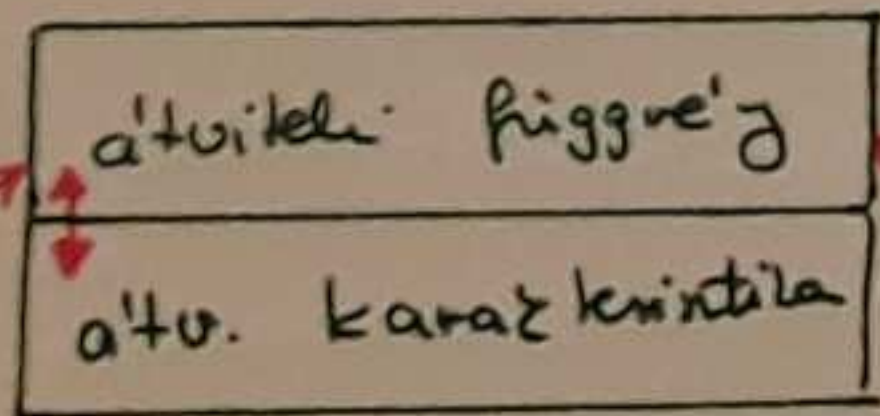 átviteli függvény
átv. karakterisztika